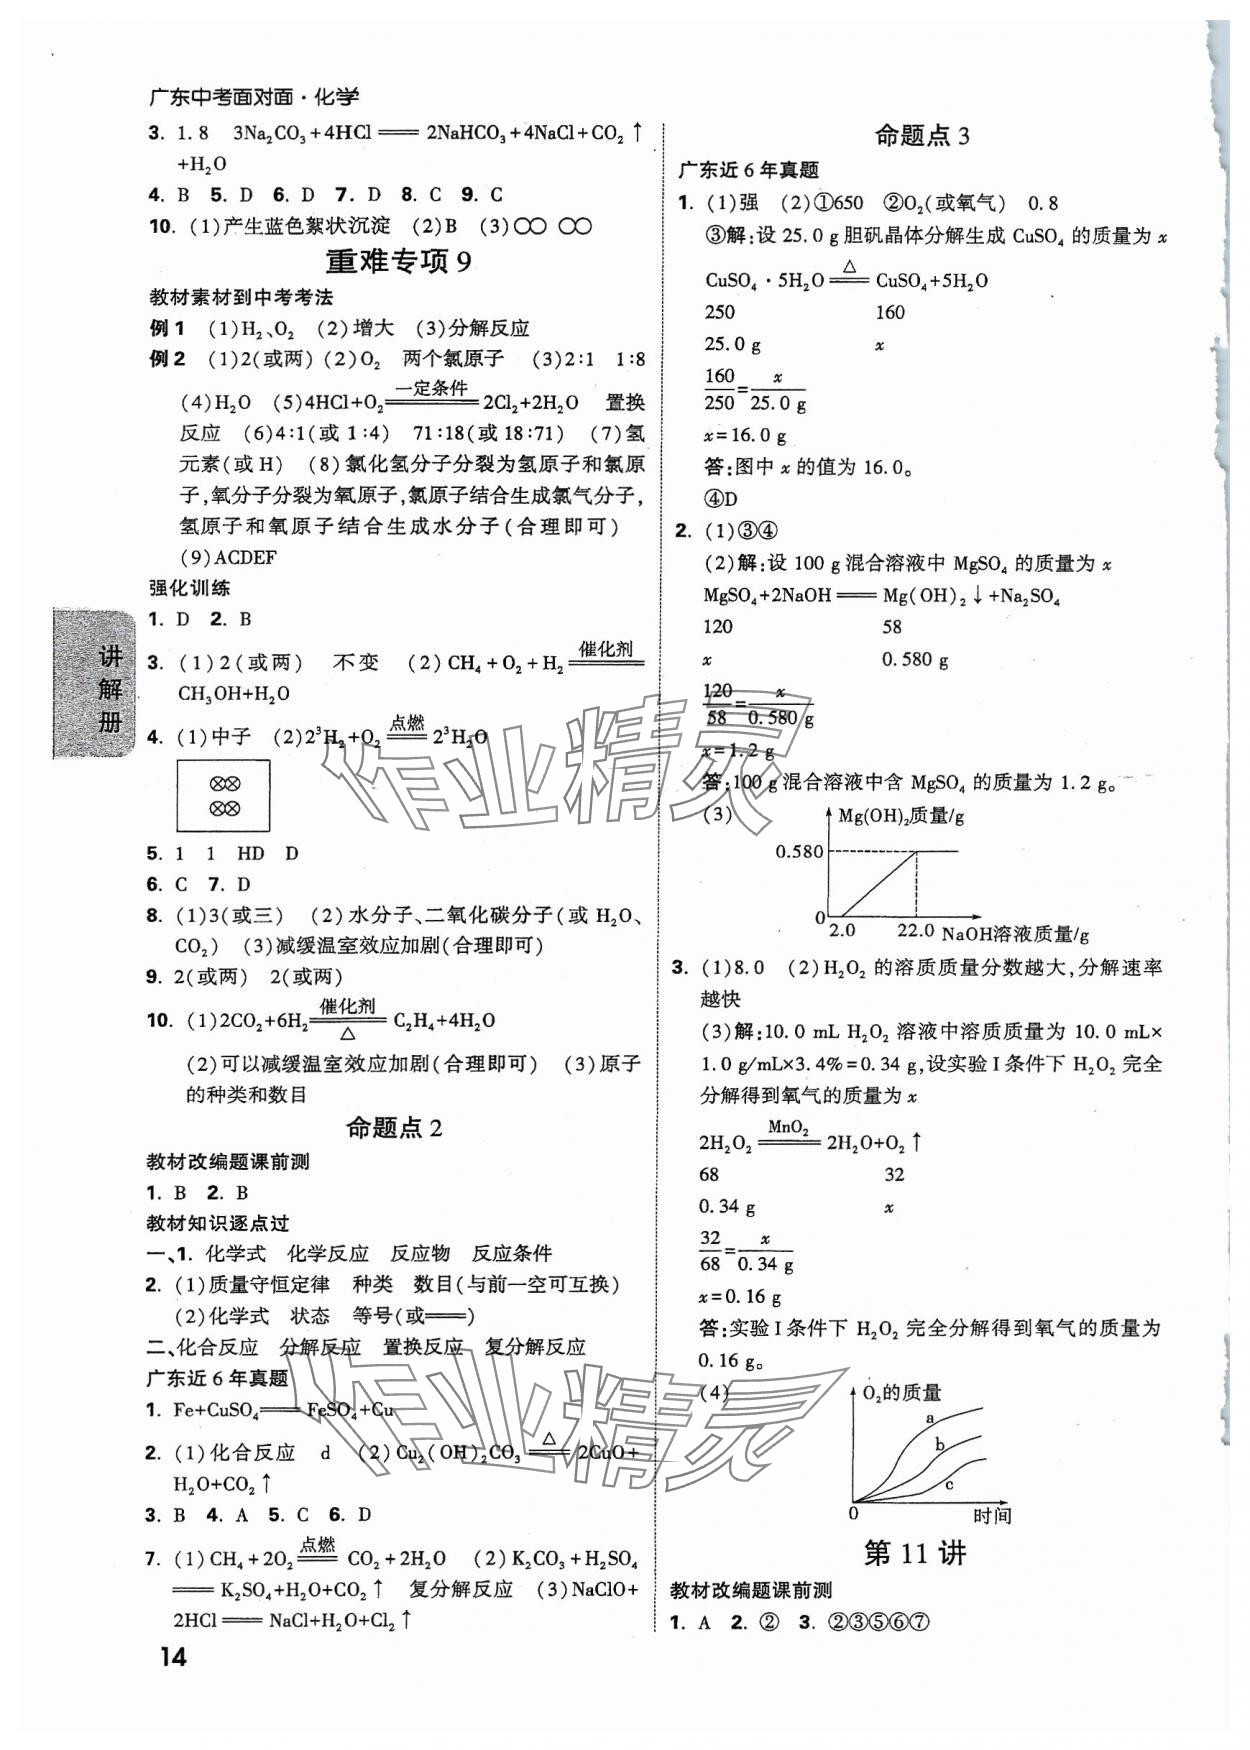 广东中考面对面·化学
3. 1.8 3Na₂CO₃+4HCl══2NaHCO₃+4NaCl+CO₂↑
+H₂O
4. B 5. D 6. D 7. D 8. C 9. C
10. (1)产生蓝色絮状沉淀 (2)B (3)
重难专项9
教材素材到中考考法
例1 (1)H₂、O₂ (2)增大 (3)分解反应
例2 (1)2(或两) (2)O₂ 两个氯原子 (3)2∶1 1∶8
(4)H₂O (5)4HCl+O₂═一定条件═2Cl₂+2H₂O 置换
反应 (6)4∶1(或1∶4) 71∶18(或18∶71) (7)氢
元素(或H) (8)氯化氢分子分裂为氢原子和氯原
子,氧分子分裂为氧原子,氯原子结合生成氯气分子,
氢原子和氧原子结合生成水分子(合理即可)
(9)ACDEF
强化训练
1. D 2. B
3. (1)2(或两) 不变 (2)CH₄+O₂+H₂═催化剂═
CH₃OH+H₂O
4. (1)中子 (2)2³H₂+O₂═点燃═2³H₂O
5. 1 1 HD D
6. C 7. D
8. (1)3(或三) (2)水分子、二氧化碳分子(或H₂O、
CO₂) (3)减缓温室效应加剧(合理即可)
9. 2(或两) 2(或两)
10. (1)2CO₂+6H₂═催化剂/△═C₂H₄+4H₂O
(2)可以减缓温室效应加剧(合理即可) (3)原子
的种类和数目
命题点2
教材改编题课前测
1. B 2. B
教材知识逐点过
一、1. 化学式 化学反应 反应物 反应条件
2. (1)质量守恒定律 种类 数目(与前一空可互换)
(2)化学式 状态 等号(或══)
二、化合反应 分解反应 置换反应 复分解反应
广东近6年真题
1. Fe+CuSO₄══FeSO₄+Cu
2. (1)化合反应 d (2)Cu₂(OH)₂CO₃═△═2CuO+
H₂O+CO₂↑
3. B 4. A 5. C 6. D
7. (1)CH₄+2O₂═点燃═CO₂+2H₂O (2)K₂CO₃+H₂SO₄
══K₂SO₄+H₂O+CO₂↑ 复分解反应 (3)NaClO+
2HCl══NaCl+H₂O+Cl₂↑
14
讲解册
命题点3
广东近6年真题
1. (1)强 (2)①650 ②O₂(或氧气) 0.8
③解:设25.0 g胆矾晶体分解生成CuSO₄的质量为x
CuSO₄·5H₂O═△═CuSO₄+5H₂O
250 160
25.0 g x
160/250=x/25.0 g
x=16.0 g
答:图中x的值为16.0。
④D
2. (1)③④
(2)解:设100 g混合溶液中MgSO₄的质量为x
MgSO₄+2NaOH══Mg(OH)₂↓+Na₂SO₄
120 58
x 0.580 g
120/58=x/0.580 g
x=1.2 g
答:100 g混合溶液中含MgSO₄的质量为1.2 g。
(3)
Mg(OH)₂质量/g
0.580
0
2.0 22.0 NaOH溶液质量/g
3. (1)8.0 (2)H₂O₂的溶质质量分数越大,分解速率
越快
(3)解:10.0 mL H₂O₂溶液中溶质质量为10.0 mL×
1.0 g/mL×3.4%=0.34 g,设实验Ⅰ条件下H₂O₂完全
分解得到氧气的质量为x
2H₂O₂═MnO₂═2H₂O+O₂↑
68 32
0.34 g x
32/68=x/0.34 g
x=0.16 g
答:实验Ⅰ条件下H₂O₂完全分解得到氧气的质量为
0.16 g。
(4)
O₂的质量
a
b
c
0 时间
第11讲
教材改编题课前测
1. A 2. ② 3. ②③⑤⑥⑦
作业精灵
作业精灵